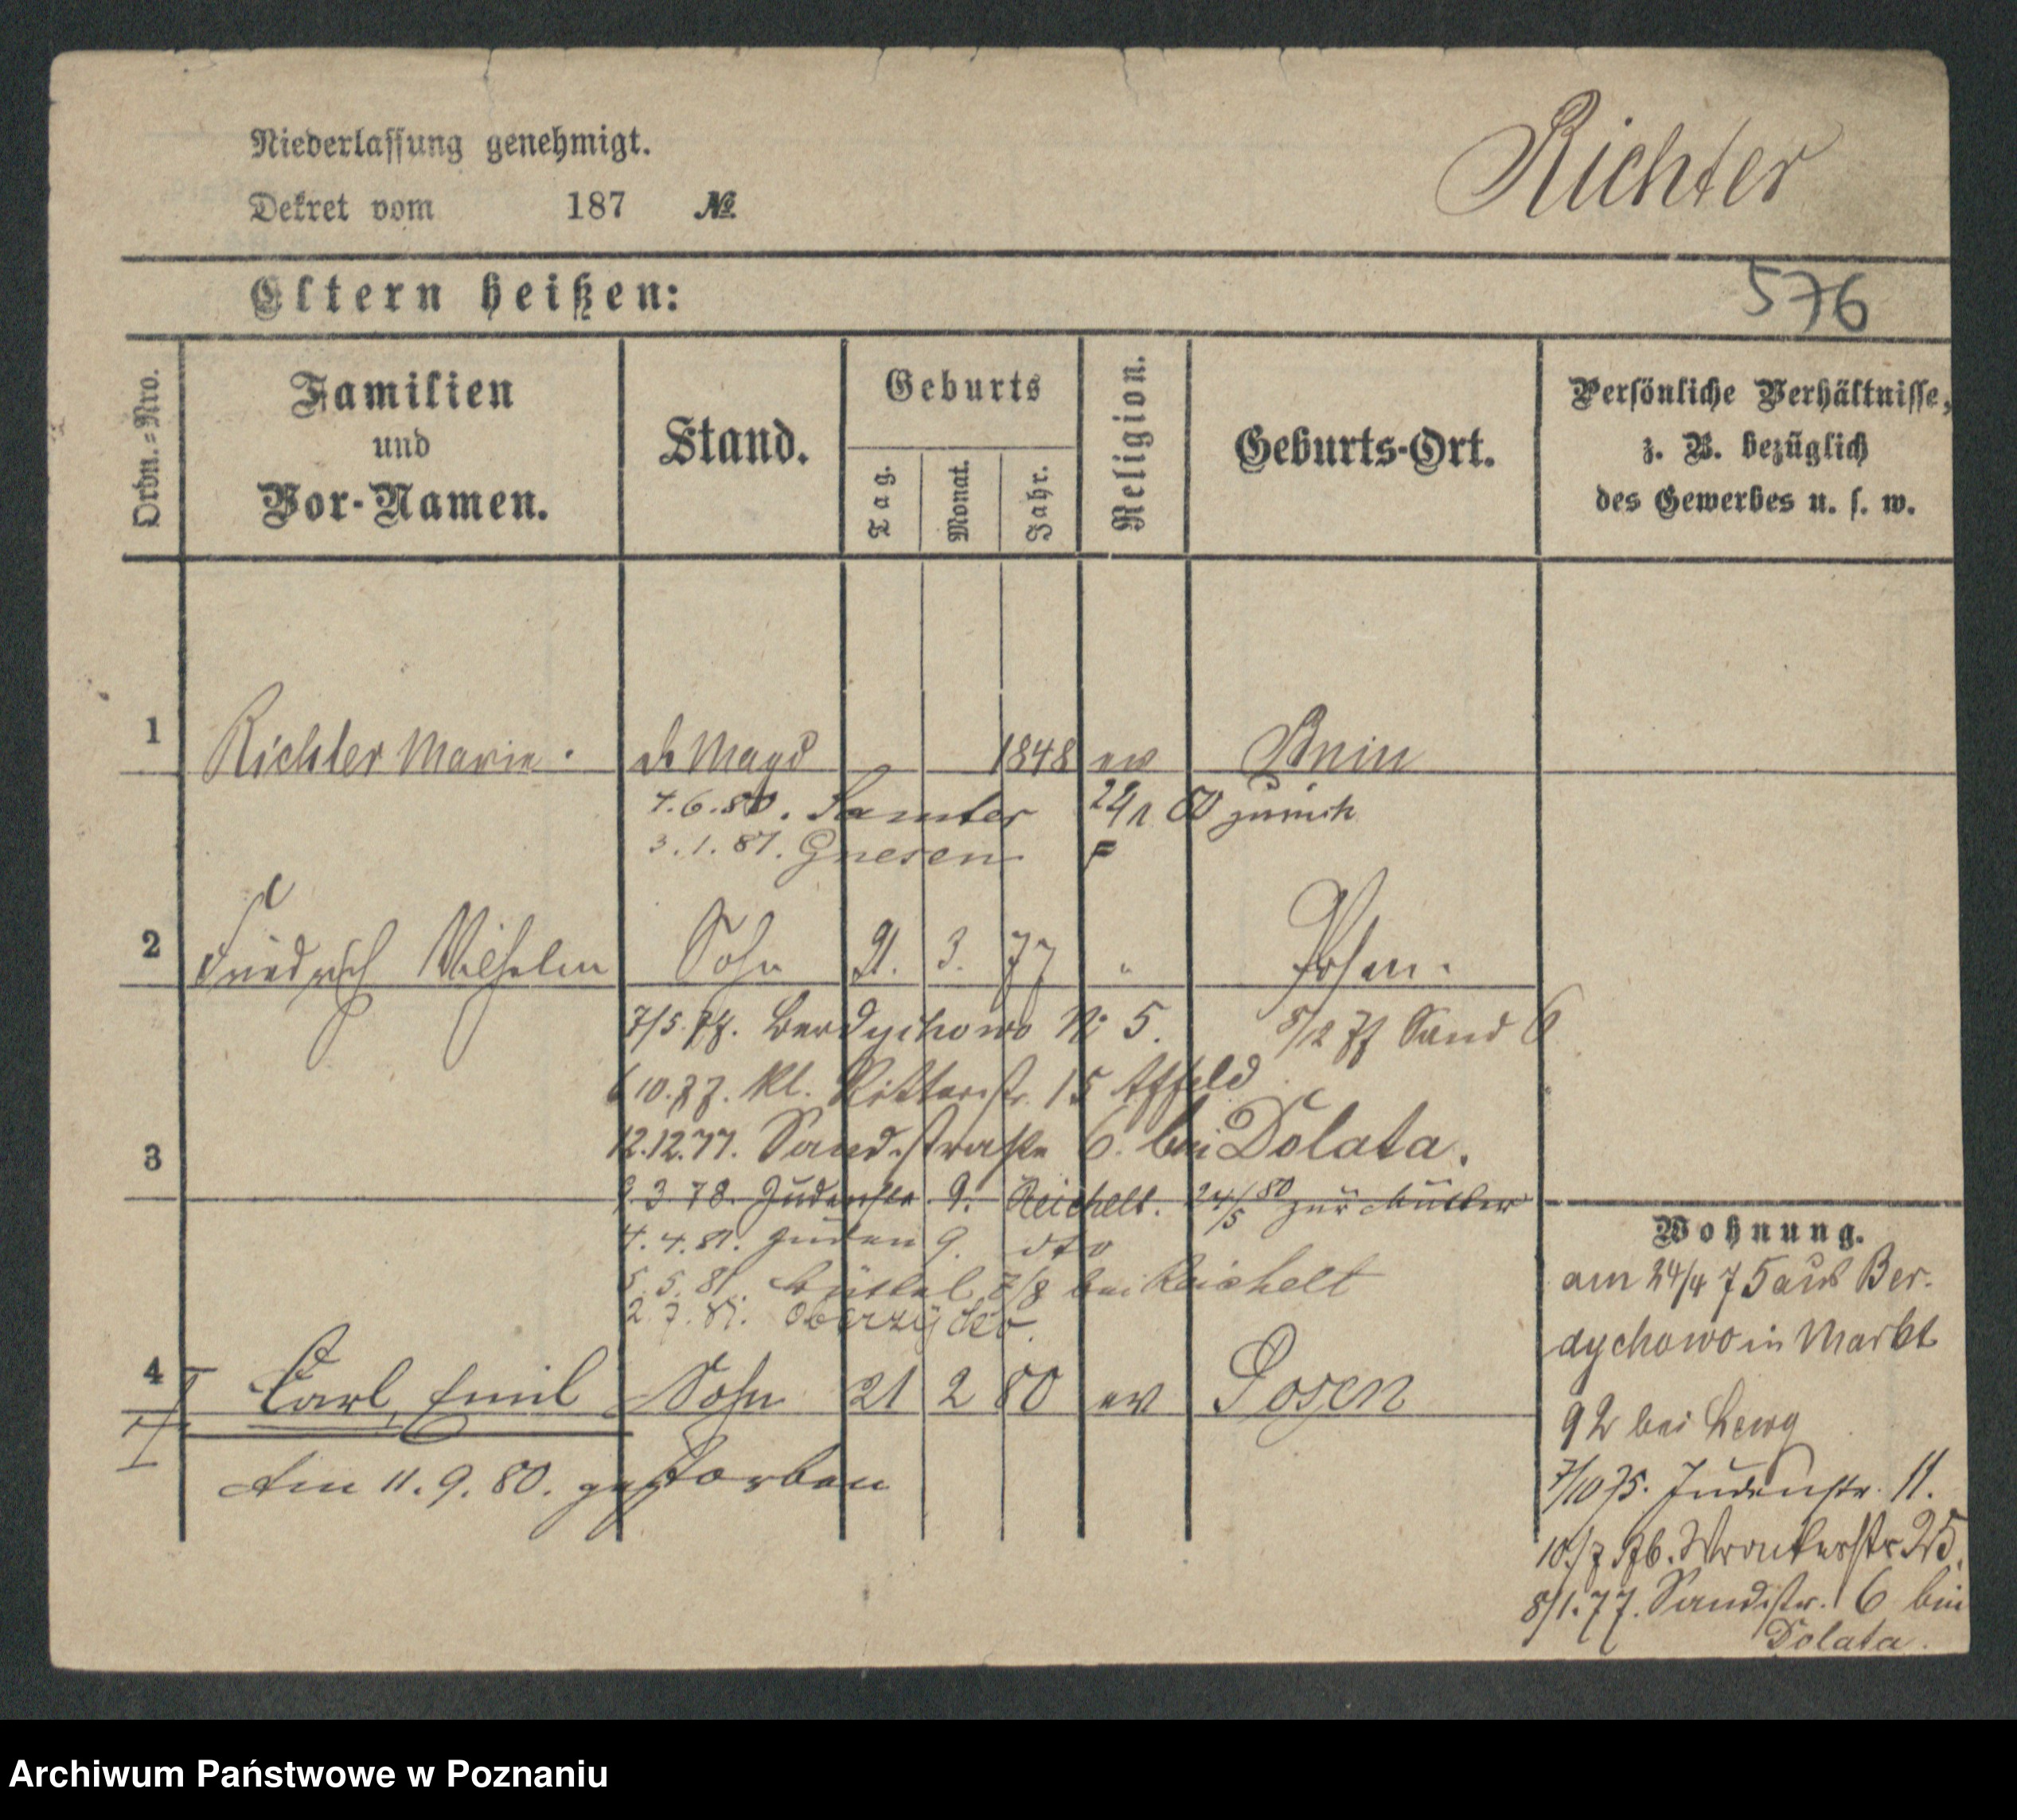 Niederlassung genehmigt.
Richter
Dekret vom 187 №
Eltern heißen:
576
Ordn.=Nro.
Familien
und
Vor-Namen.
Stand.
Geburts
Tag.
Monat.
Jahr.
Religion.
Geburts-Ort.
Persönliche Verhältnisse,
z. B. bezüglich
des Gewerbes u. s. w.
1 Richter Marie. Magd 1848 ev Bnin
4.6.80. Samter zurück
3.1.87. Gnesen
2 Friedrich Wilhelm Sohn 21. 3. 77 " Posen.
7/5.77. Berdychowo № 5. 8/12 77 Sand 6
6 10.77. Kl. Ritterstr. 15
3 12.12.77. Sandstraße 6. bei Dolata.
9.3.78. Judenstr. 9. Reichelt. 24/5 80 zur Mutter
4.4.81. Juden 9. dto
5.5.81. Büttel 7/8 bei Reichelt
2.7.81. Obersitzko.
4 Carl, Emil Sohn 21 2 80 ev Posen
Am 11.9.80. gestorben
Wohnung.
am 24/4 75 aus Ber-
dychowo in Markt
92 bei Lewy
7/10 75. Judenstr. 11.
10/7 76. Wronkerstr 25.
8/1.77. Sandstr. 6 bei
Dolata.
Archiwum Państwowe w Poznaniu